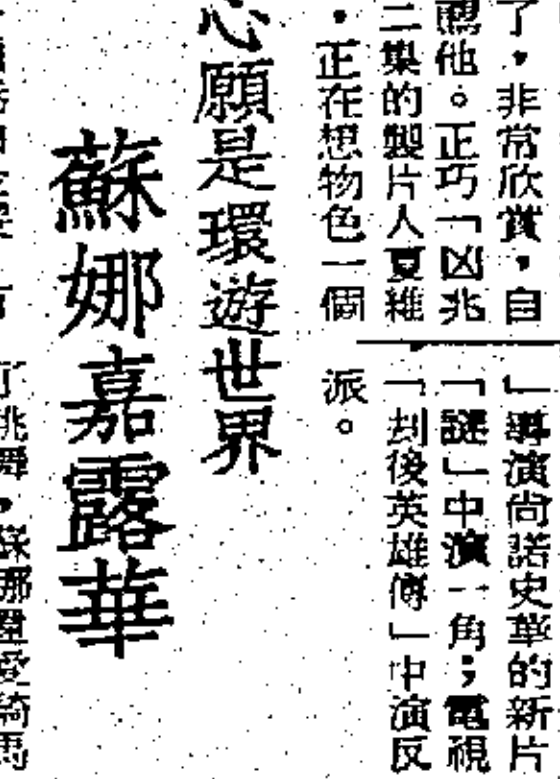 了，非常欣賞，自
薦他。正巧「凶兆
二集的製片人夏維
，正在想物色一個
」導演尚諾史華的新片
「謎」中演一角；電視
「刦後英雄傳」中演反
派。
心願是環遊世界
蘇娜嘉露華
跳舞，蘇娜還愛騎馬